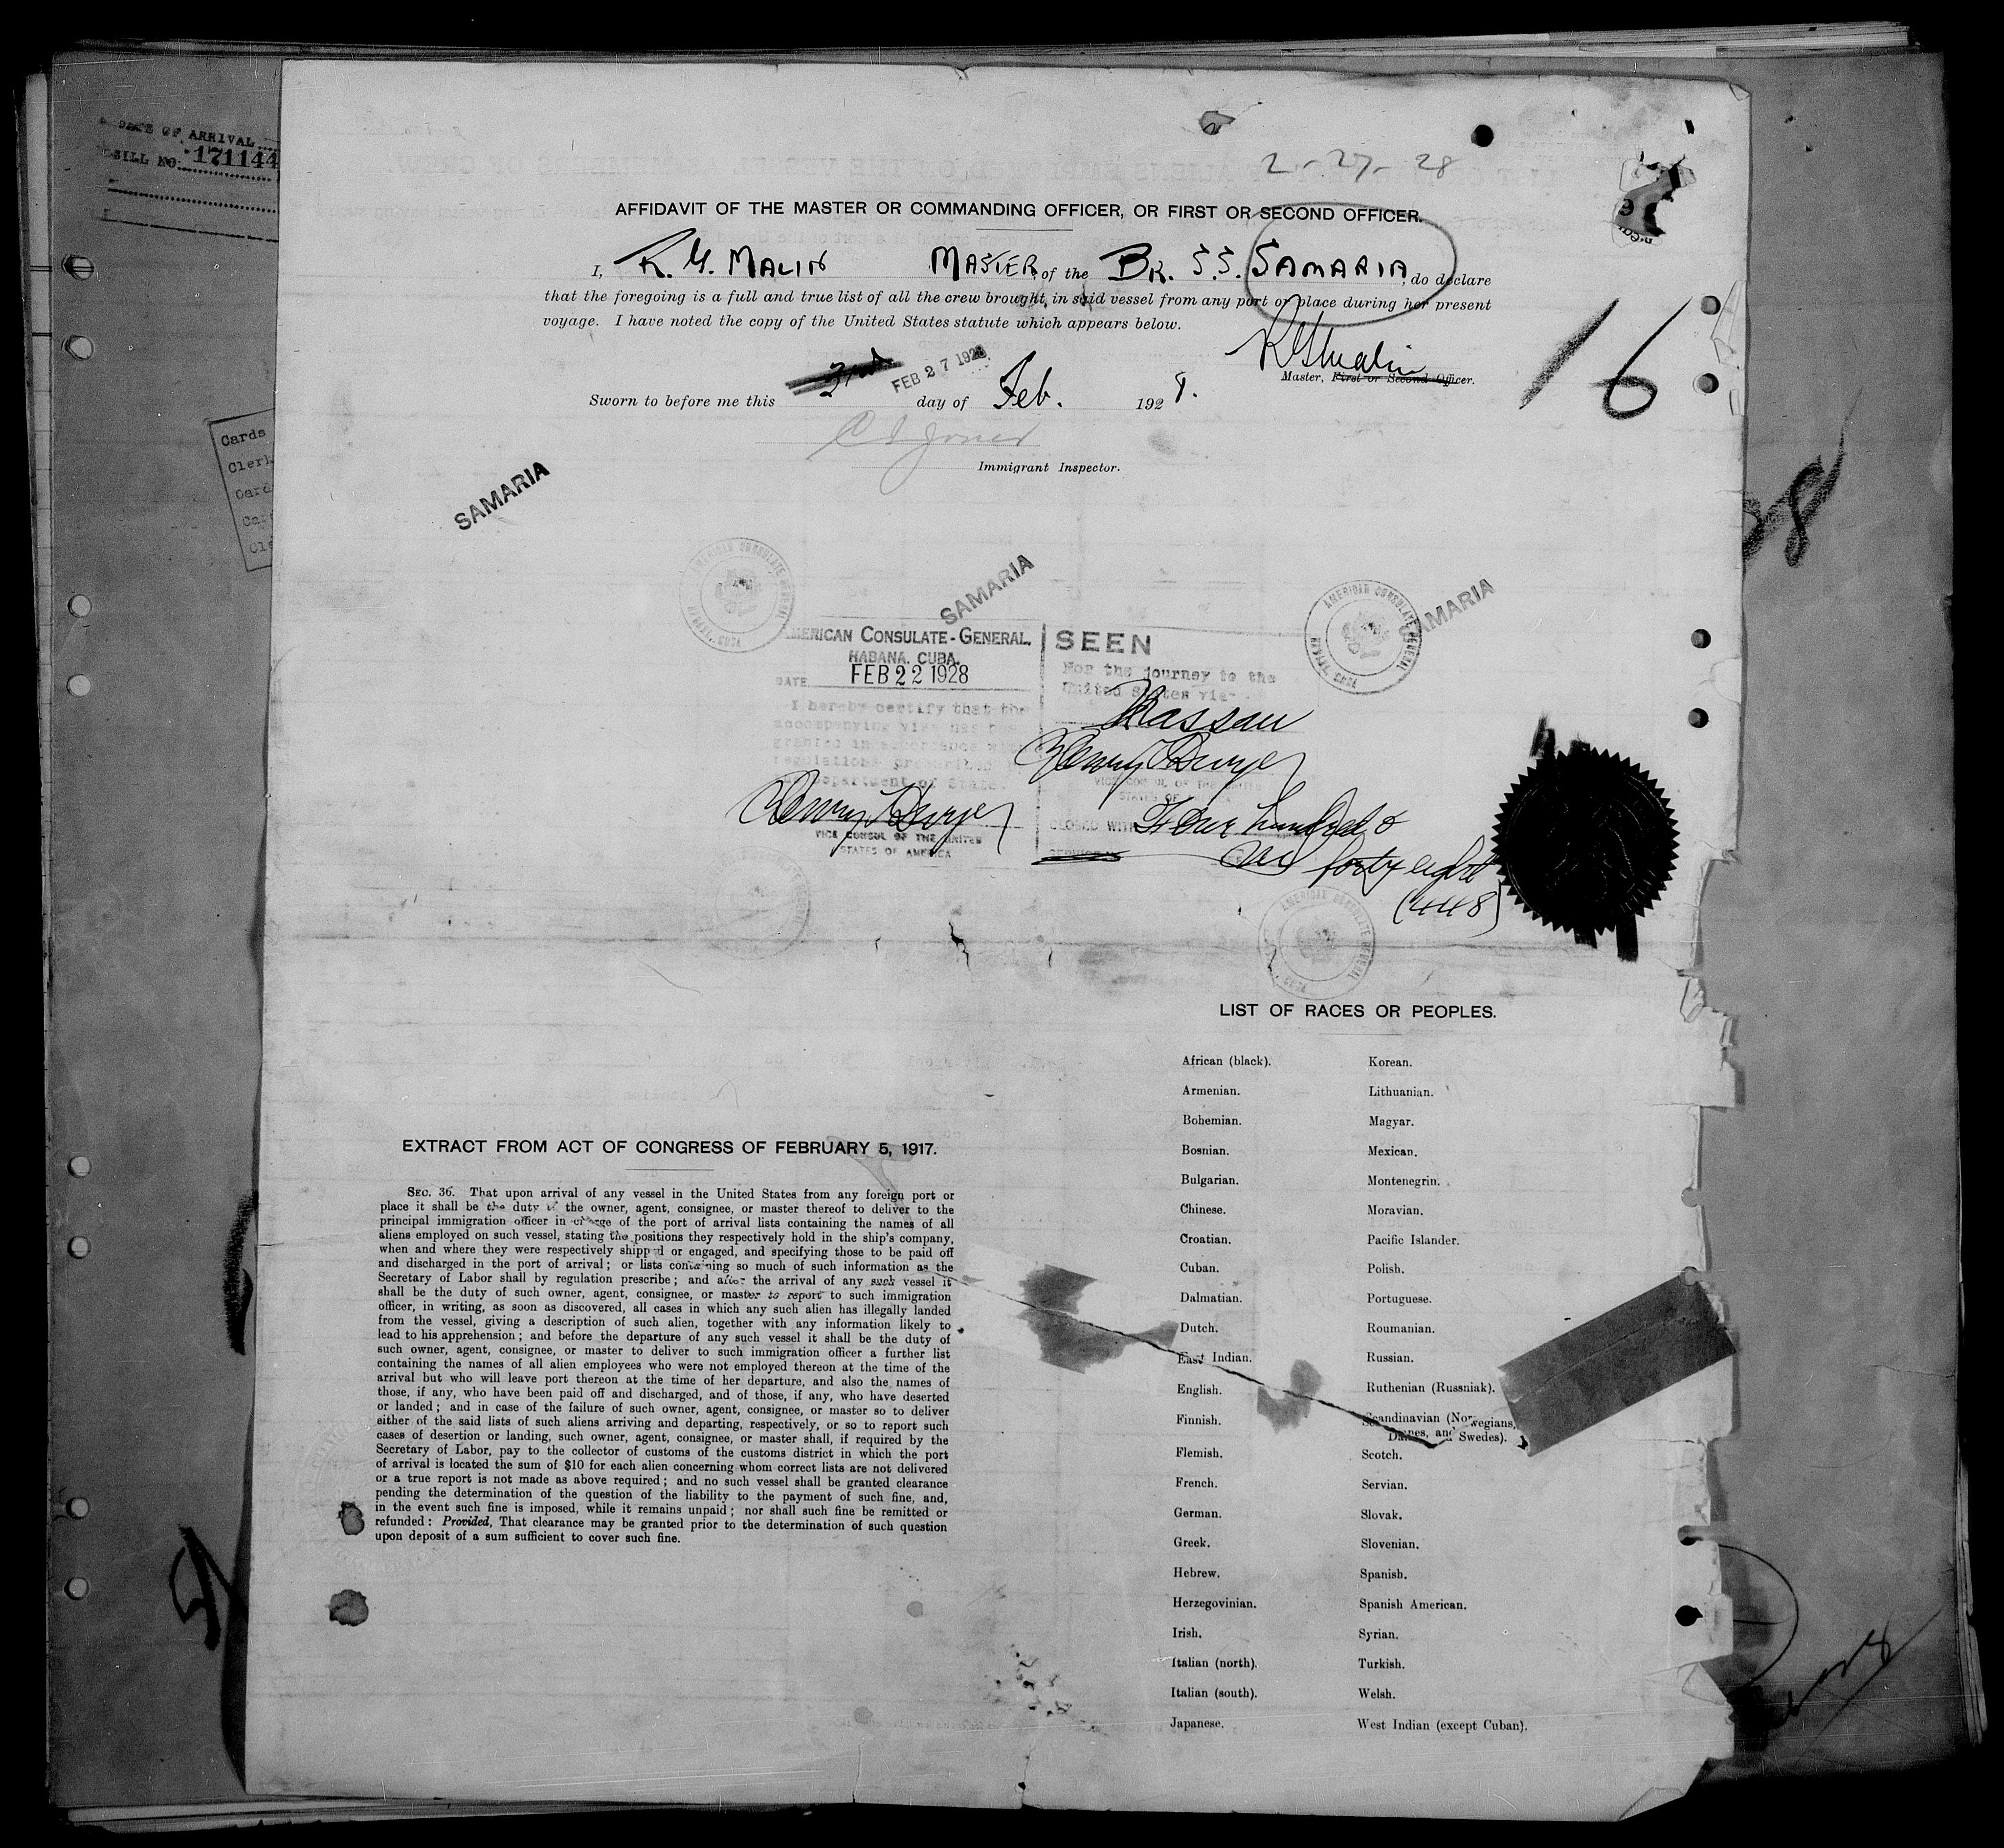 DATE OF ARRIVAL
BILL NO. 171144
2-27-28
AFFIDAVIT OF THE MASTER OR COMMANDING OFFICER, OR FIRST OR SECOND OFFICER.
I, R. G. MALIN MASTER of the BR. S.S. SAMARIA, do declare
that the foregoing is a full and true list of all the crew brought in said vessel from any port or place during her present
voyage. I have noted the copy of the United States statute which appears below.
16
Master, First or Second Officer.
FEB 27 1928
Sworn to before me this day of Feb. 1928.
C I Jones
Immigrant Inspector.
Cards
Clerk
Card
SAMARIA
SAMARIA
SAMARIA
AMERICAN CONSULATE GENERAL
HABANA, CUBA
AMERICAN CONSULATE GENERAL
HABANA, CUBA
AMERICAN CONSULATE-GENERAL,
HABANA, CUBA.
DATE FEB 22 1928
I hereby certify that the
accompanying visa has been
granted in accordance with
regulations prescribed
Department of State.
Henry T Dwyer
VICE CONSUL OF THE UNITED
STATES OF AMERICA
SEEN
For the journey to the
United States via
Nassau
Henry T Dwyer
VICE CONSUL OF THE UNITED
STATES OF AMERICA
CLOSED WITH Four hundred &
forty eight
(448)
AMERICAN CONSULATE GENERAL
LIST OF RACES OR PEOPLES.
African (black). Korean.
Armenian. Lithuanian.
Bohemian. Magyar.
Bosnian. Mexican.
Bulgarian. Montenegrin.
Chinese. Moravian.
Croatian. Pacific Islander.
Cuban. Polish.
Dalmatian. Portuguese.
Dutch. Roumanian.
East Indian. Russian.
English. Ruthenian (Russniak).
Finnish. Scandinavian (Norwegians,
Danes, and Swedes).
Flemish. Scotch.
French. Servian.
German. Slovak.
Greek. Slovenian.
Hebrew. Spanish.
Herzegovinian. Spanish American.
Irish. Syrian.
Italian (north). Turkish.
Italian (south). Welsh.
Japanese. West Indian (except Cuban).
EXTRACT FROM ACT OF CONGRESS OF FEBRUARY 5, 1917.
SEC. 36. That upon arrival of any vessel in the United States from any foreign port or
place it shall be the duty of the owner, agent, consignee, or master thereof to deliver to the
principal immigration officer in charge of the port of arrival lists containing the names of all
aliens employed on such vessel, stating the positions they respectively hold in the ship's company,
when and where they were respectively shipped or engaged, and specifying those to be paid off
and discharged in the port of arrival; or lists containing so much of such information as the
Secretary of Labor shall by regulation prescribe; and after the arrival of any such vessel it
shall be the duty of such owner, agent, consignee, or master to report to such immigration
officer, in writing, as soon as discovered, all cases in which any such alien has illegally landed
from the vessel, giving a description of such alien, together with any information likely to
lead to his apprehension; and before the departure of any such vessel it shall be the duty of
such owner, agent, consignee, or master to deliver to such immigration officer a further list
containing the names of all alien employees who were not employed thereon at the time of the
arrival but who will leave port thereon at the time of her departure, and also the names of
those, if any, who have been paid off and discharged, and of those, if any, who have deserted
or landed; and in case of the failure of such owner, agent, consignee, or master so to deliver
either of the said lists of such aliens arriving and departing, respectively, or so to report such
cases of desertion or landing, such owner, agent, consignee, or master shall, if required by the
Secretary of Labor, pay to the collector of customs of the customs district in which the port
of arrival is located the sum of $10 for each alien concerning whom correct lists are not delivered
or a true report is not made as above required; and no such vessel shall be granted clearance
pending the determination of the question of the liability to the payment of such fine, and,
in the event such fine is imposed, while it remains unpaid; nor shall such fine be remitted or
refunded: Provided, That clearance may be granted prior to the determination of such question
upon deposit of a sum sufficient to cover such fine.